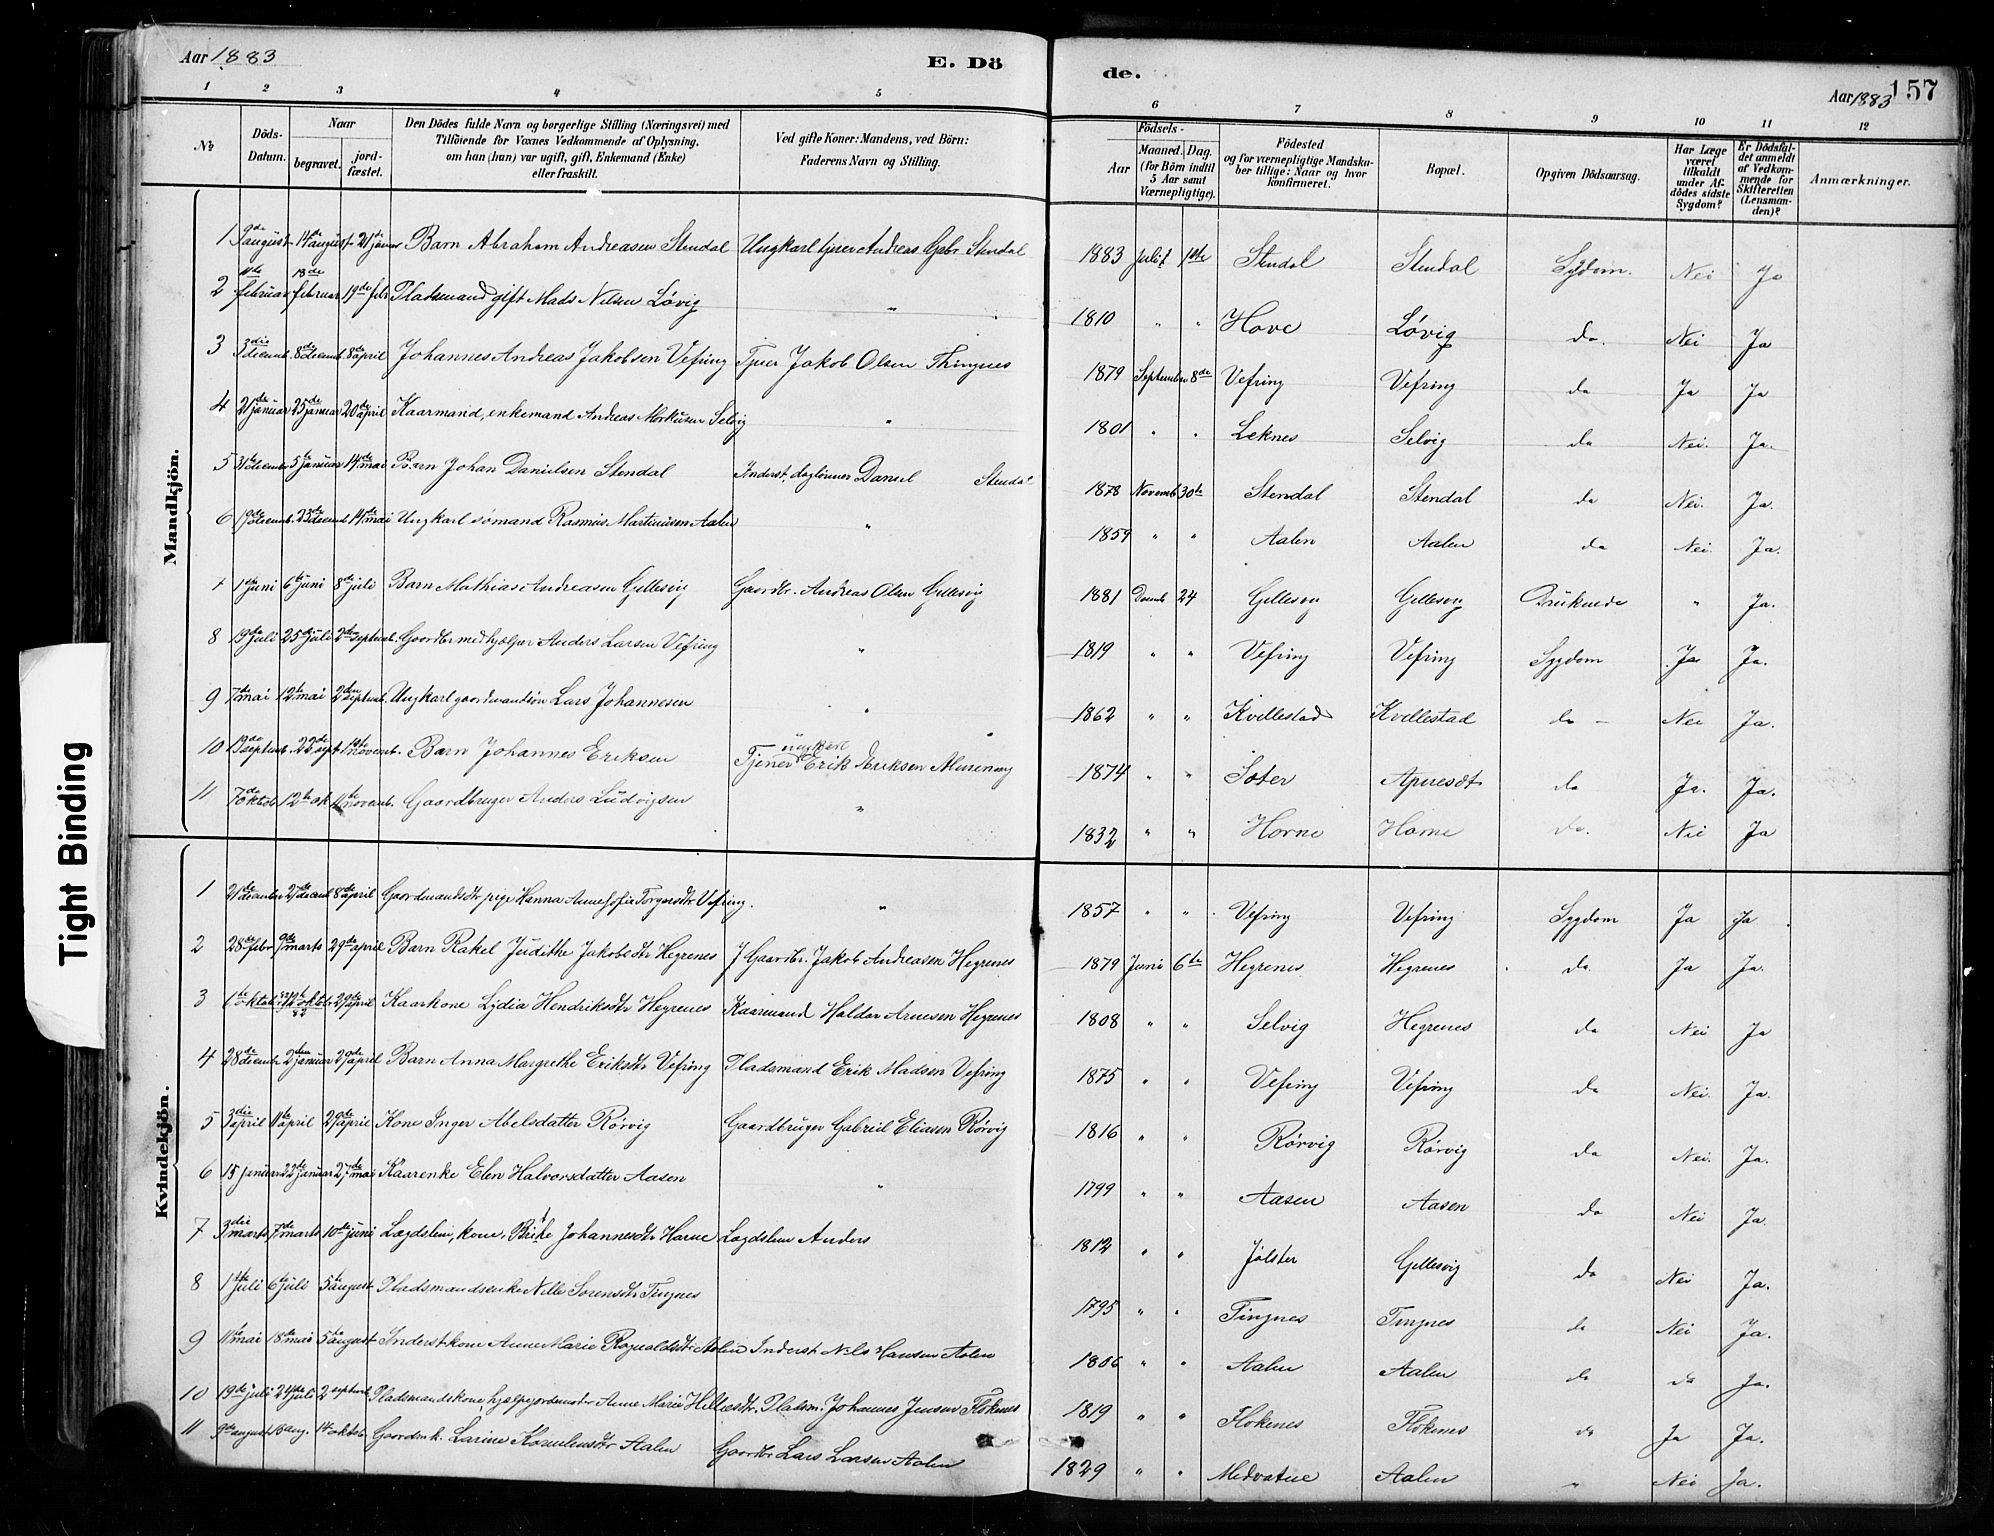 Aar 1883
E. Dö
de.
Aar 1883
157
1 2 3 4 5 6 7 8 9 10 11 12
№
Döds-Datum.
Naar
begravet.
jord-fæstet.
Den Dödes fulde Navn og borgerlige Stilling (Næringsvei) med
Tilföiende for Voxnes Vedkommende af Oplysning,
om han (hun) var ugift, gift, Enkemand (Enke)
eller fraskilt.
Ved gifte Koner: Mandens, ved Börn:
Faderens Navn og Stilling.
Födsels-
Aar
Maaned. Dag.
(for Börn indtil
5 Aar samt
Værnepligtige).
Födested
og for værnepligtige Mandska-
ber tillige: Naar og hvor
konfirmeret.
Bopæl.
Opgiven Dödsaarsag.
Har Læge
været
tilkaldt
under Af-
dödes sidste
Sygdom?
Er Dödsfal-
det anmeldt
af Vedkom-
mende for
Skifteretten
(Lensman-
den)?
Anmærkninger.
Mandkjön.
1 9de august 14de august 21 Barn Abraham Andreasen Stendal Ungkarl tjener Andreas Gabr. Stendal 1883 Juli 1ste Stendal Stendal Sygdom. Nei Ja
2 11te februar 18de februar 19de febr Pladsmand gift Mads Nilsen Løvig " 1810 " " Hove Løvig do. Nei Ja
3 3die decemb. 8de decemb. 8de april Johannes Andreas Jakobsen Vefring Tjener Jakob Olsen Thingnes 1879 September 8de Vefring Vefring do Ja Ja
4 21de januar 25de januar 20de april Kaarmand, enkemand Andreas Markusen Selvig " 1801 " " Leknes Selvig do Nei. Ja.
5 31te december 5te januar 14de mai Barn Johan Danielsen Stendal Inderst, daglønner Daniel Stendal 1878 Novemb 30te Stendal Stendal do Nei. Ja.
6 19de decemb. 23de decemb 14de mai Ungkarl sømand Rasmus Martinusen Aalen " 1859 " " Aalen Aalen do Nei. Ja.
7 1ste juni 6te juni 8de juli Barn Mathias Andreasen Gillesvig Gaardbr. Andreas Olsen Gillesvig 1881 Decemb 24 Gillesvig Gillesvig Druknede " Ja.
8 19de juli 25de juli 2den septemb. Gaardbr medhjælper Anders Larsen Vefring " 1819 " " Vefring Vefring Sygdom Ja Ja.
9 7de mai 12te mai 2den septemb. Ungkarl gaardmandsøn Lars Johannesen " 1862 " " Kvellestad Kvellestad do Nei Ja.
10 13de septemb. 22de sept. 11te novemb. Barn Johannes Eriksen
ungkarl
Tjener Erik Eriksen Alureneng 1874 " " Sæter do Ja. Ja.
11 7de oktob 12te ok. 11te novemb. Gaardbruger Anders Ludvigsen " 1832 " " Horne Horne do. Nei Ja
Kvindekjön.
1 21de december 27de decemb 8de april Gaardmandsdtr pige Hanna Anne Sofie Torgersdtr Vefring. " 1857 " " Vefring Vefring Sygdom Ja Ja
2 28de febr 9de marts 29de april Barn Rakel Judithe Jakobsdtr Hegrenes Gaardbr. Jakob Andreasen Hegrenes 1879 Juni 6te Hegrenes Hegrenes do Ja Ja.
3 1ste oktob. oktob. 82 29de april Kaarkone Lydia Hendriksdtr Hegrenes Kaarmand Haldor Arnesen Hegrenes 1808 " " Selvig Hegrenes do Nei Ja
4 28de decemb. 2den januar 29de april Barn Anna Margrethe Eriksdtr Vefring Pladsmand Erik Madsen Vefring 1875 " " Vefring Vefring do Nei. Ja.
5 3die april 11te april 29de april Kone Inger Abelsdatter Rørvig Gaardbruger Gabriel Eliasen Rørvig 1816 " " Rørvig Rørvig do Nei. Ja.
6 15 januar 22de januar 27de mai Kaarenke Elen Halvorsdatter Aasen " 1799 " " Aasen Aasen do Nei Ja.
7 3die marts 7de marts 10de juni Lægdslem, kone, Johannesdtr Horne Lægdslem Anders 1812 " " Jølster Gillesvig do Nei Ja.
8 1ste juli 6te juli 5te august Pladsmandsenke Nille Sørensdtr Tingnes 1795 " " Tingnes Tingnes do Nei Ja.
9 11te mai 18de mai 5te august Inderst kone Anne Marie Rognaldsdtr Aalen Inderst Nils Hansen Aalen 1806 " " Aalen Aalen do do Ja.
10 19de juli 24de juli 2 septemb Pladsmandskone, hjælpejordemoder Anne Marie Pladsm. Johannes Jensen Flokenes 1819 " " Flokenes Flokenes do Ja Ja.
11 9de august 18 aug. 14 oktob. Gaardm.k. Larine Aalen Gaardbr Lars Larsen Aalen 1829 " " Aalen " Nei Ja.
Tight Binding